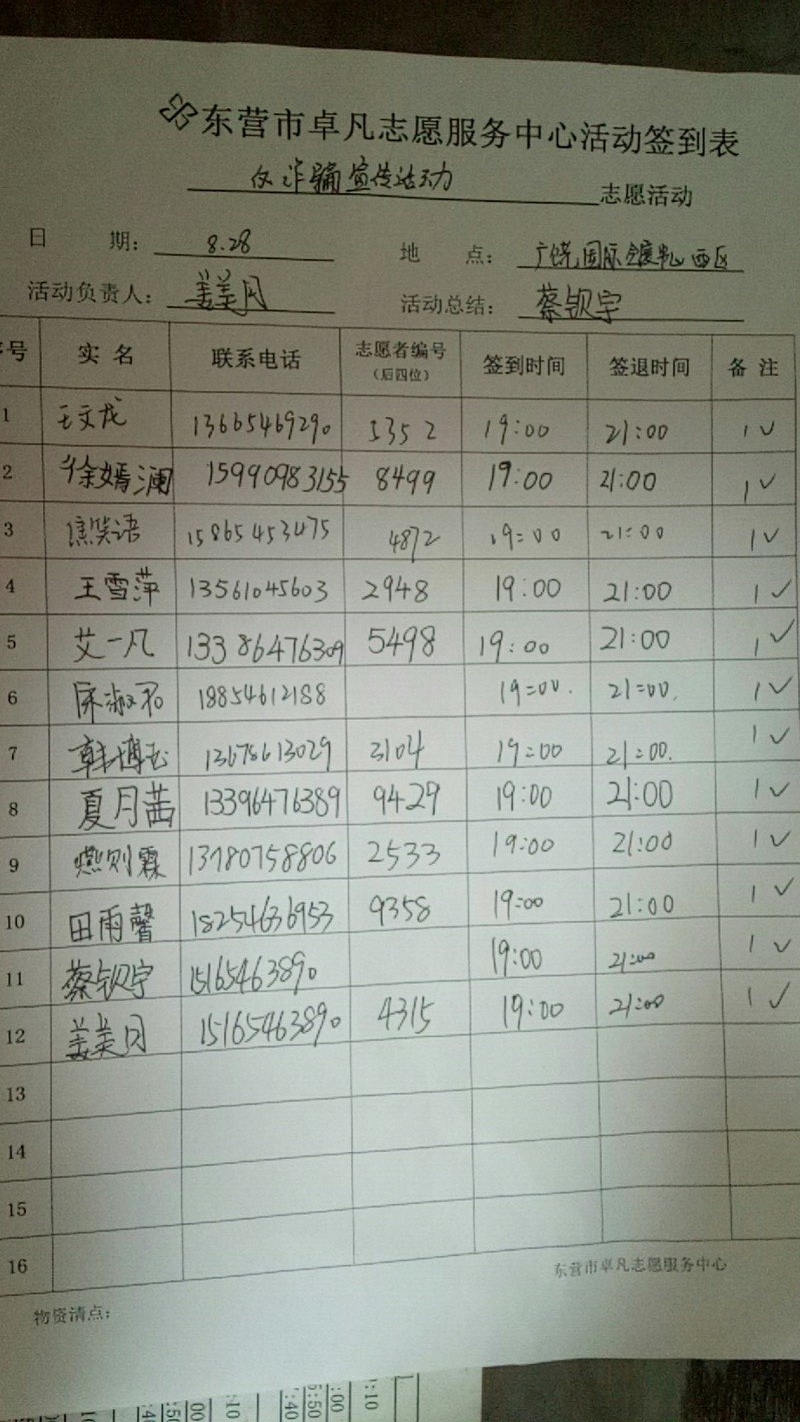 东营市卓凡志愿服务中心活动签到表
反诈骗宣传活动 志愿活动
日 期： 8.28 地 点： 广饶国际 西区
活动负责人： 姜美月 活动总结： 蔡钡宇
序号 实 名 联系电话 志愿者编号（后四位） 签到时间 签退时间 备 注
1 王文龙 13665469290 5352 19:00 21:00 1√
2 徐嫣澜 15990983155 8499 19:00 21:00 1√
3 焦笑语 15865453475 4872 19:00 21:00 1√
4 王雪萍 13561045603 2948 19:00 21:00 1√
5 艾一凡 13386476309 5498 19:00 21:00 1√
6 18854612188 19:00 21:00 1√
7 韩博 13678613029 3104 19:00 21:00 1√
8 夏月茜 13396476389 9429 19:00 21:00 1√
9 燕则霖 13780758806 2533 19:00 21:00 1√
10 田雨馨 18254636953 9358 19:00 21:00 1√
11 蔡钡宇 15165463890 19:00 21:00 1√
12 姜美月 15165463890 4315 19:00 21:00 1√
13
14
15
16
东营市卓凡志愿服务中心
物资清点：